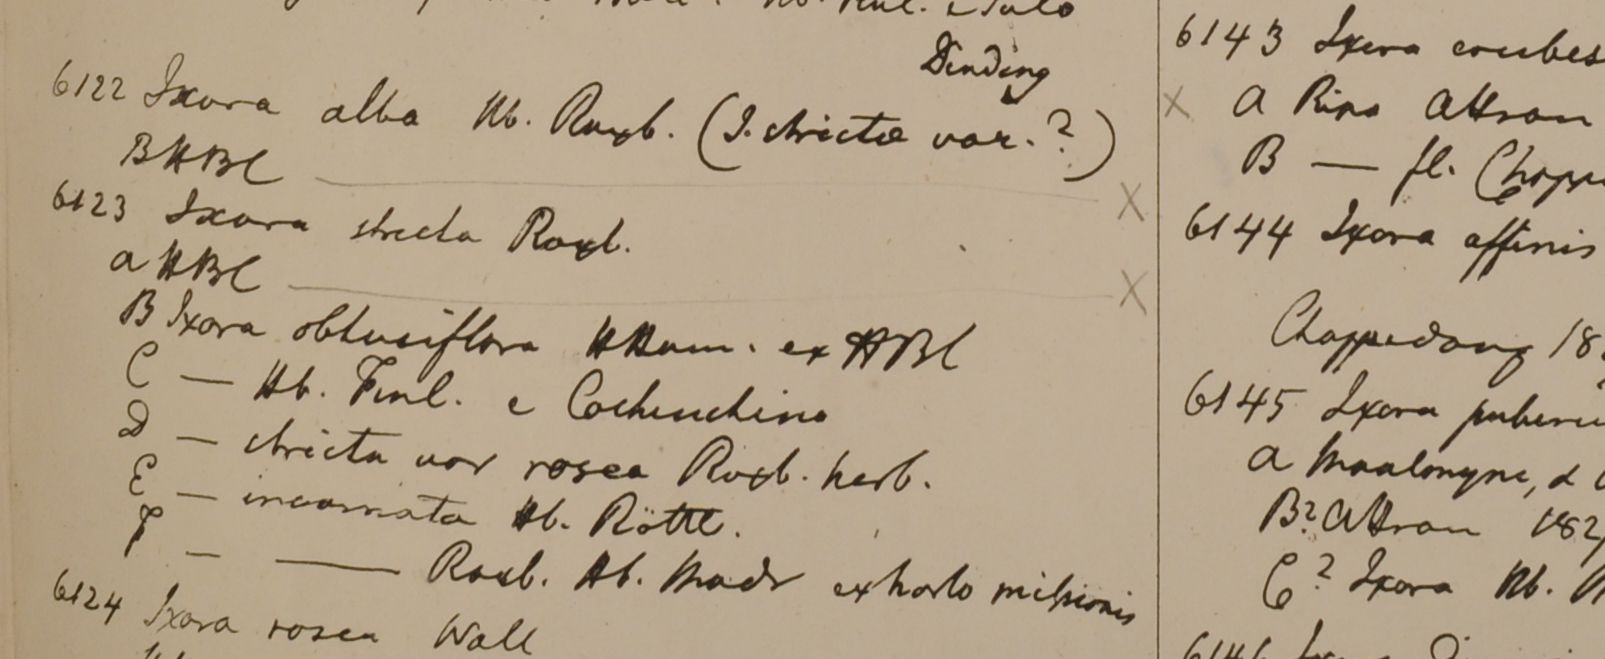 Hb. Finl. e Pulo
Dinding
6122 Ixora alba Hb. Roxb. (I. stricta var.?)
B HBC
6123 Ixora stricta Roxb.
a HBC
B Ixora obtusiflora HHam. ex HBC
C — Hb. Finl. e Cochinchina
D — stricta var rosea Roxb. herb.
E — incarnata Hb. Röttl.
F — — Roxb. Hb. Madr ex horto missionis
6124 Ixora rosea Wall
6143 Ixora erubes
X a Ripa Attran
B — fl. Chapp
6144 Ixora affinis
Chappedong 18
6145 Ixora puberu
a Moalmyne, d
B? Attran 182
C? Ixora Hb.
6146